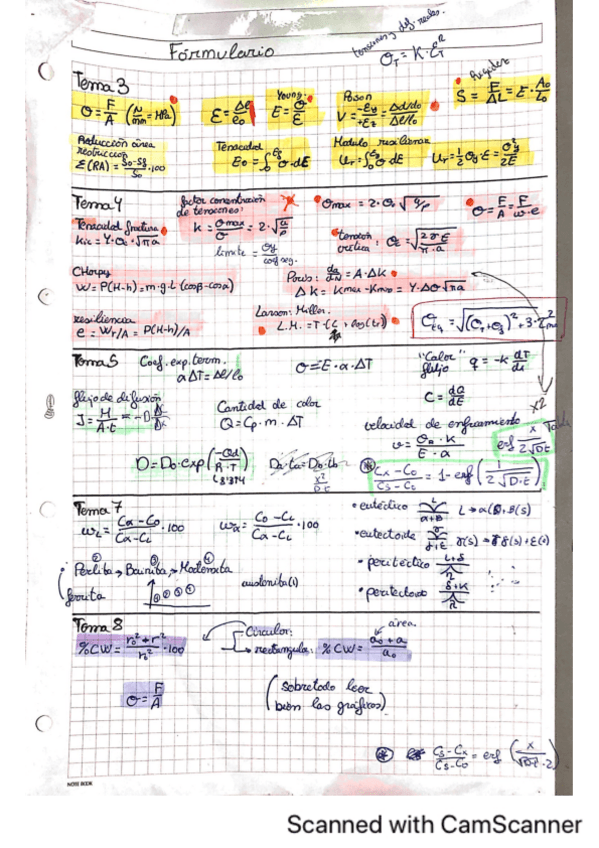 Fórmulario
tensiones y def. reales.
σT = K·εT^n
Tema 3
σ = F/A (N/mm = MPa)
ε = Δl/l₀
Young:
E = σ/ε
Poson
V = -εy/+εz = Δd/d₀ / Δl/l₀
Rigidez
S = F/ΔL = E·A₀/L₀
Reducción área
restricción
Σ(RA) = S₀-Sf/S₀ ·100
Tenacidad
Módulo resiliencia
Ur = 1/2 σy·ε = σy²/2E
Tema 4
factor concentración
de tensiones:
k = σmax/σ = 2·√(a/ρ)
σmax = 2·σ₀√(a/ρ)
σ = F/A = F/w·e
Tenacidad fractura
Kic = Y·σc·√πa
límite = σy/cof seg.
tensión
crítica: σc = √(2γE/π·a)
CHarpy
W = P(H-h) = m·g·L (cosβ-cosα)
Paris: da/dN = A·ΔK
ΔK = Kmax-Kmin = Y·Δσ√πa
resiliencia
e = Wr/A = P(H-h)/A
Larson-Miller.
Tema 5
Coef. exp. term.
αΔT = Δl/l₀
σ = E·α·ΔT
"Calor"
flujo
q = -k dT/dx
flujo de difusión
Cantidad de calor
Q = Cp·m·ΔT
C = dQ/dE
x2
velocidad de enfriamiento
v = σa·K/E·a
erf x/2√Dt
Tabla
D = D₀·exp(-Qd/R·T)
(8'314
x²/D·t
⊛ Cx-C₀/Cs-C₀ = 1-erf(1/2√D·t)
Tema 7
WL = Cα-C₀/Cα-CL ·100
Wα = C₀-CL/Cα-CL ·100
•eutéctico L/α+β
•eutectoide
•peritéctico L+δ
•peritectoide
② ③ ④
Perlita → Bainita → Martensita
ferrita
①②③④
austenita(1)
Tema 8
%CW = r₀²+r²/r₀² ·100
Circular:
rectangular: %CW = a₀+a/a₀
área.
σ = F/A
(sobretodo leer
bien las gráficos)
⊛ Cs-Cx/Cs-C₀ = erf (x/√Dt·2)
NOTE BOOK
Scanned with CamScanner